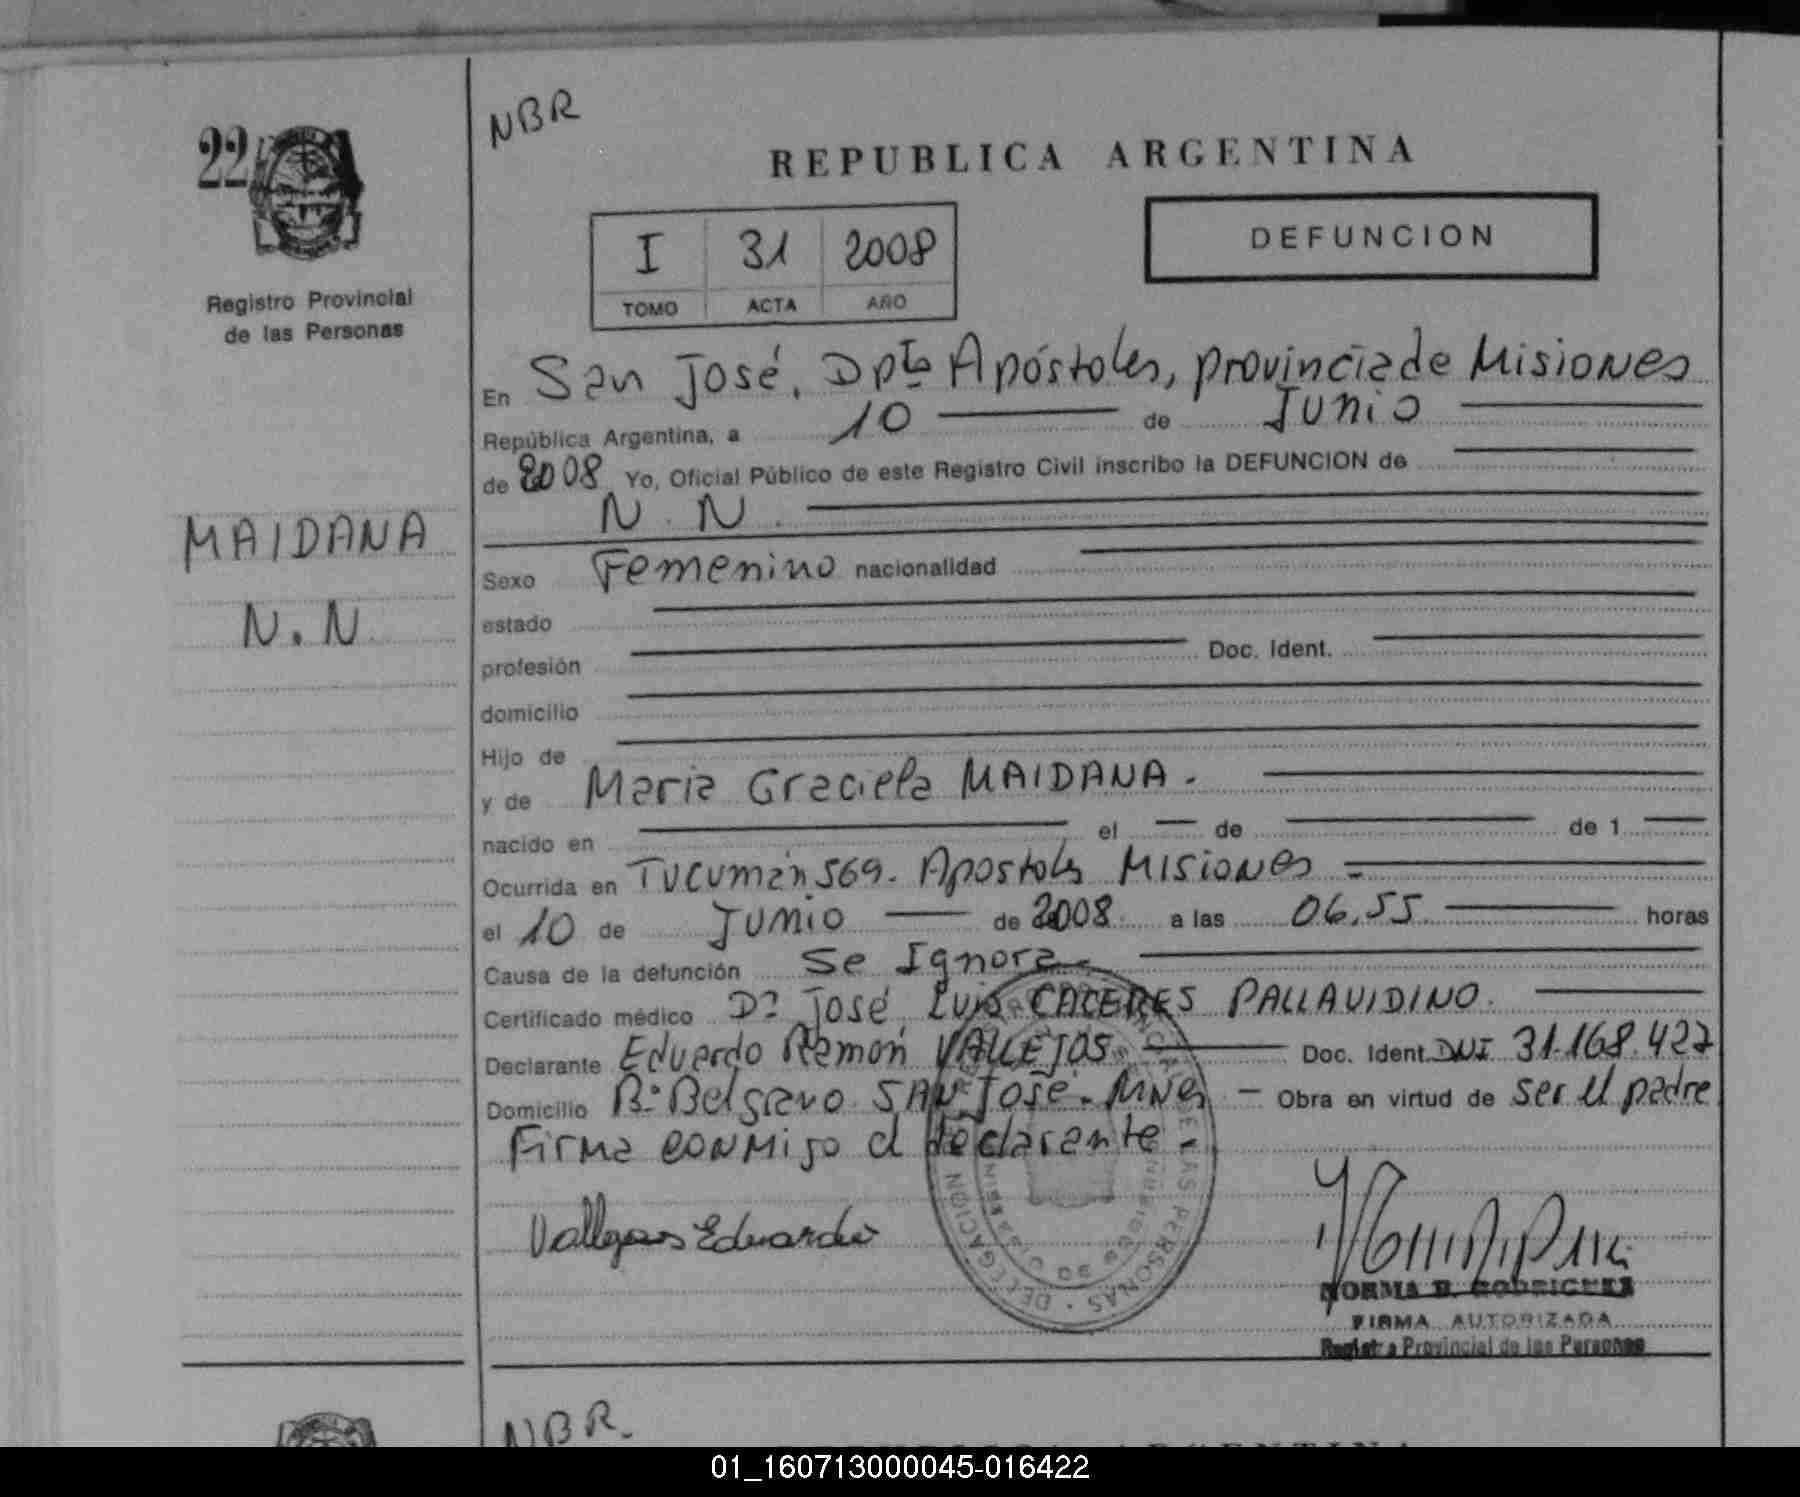 NBR
22
REPUBLICA ARGENTINA
I 31 2008
TOMO ACTA AÑO
DEFUNCION
Registro Provincial
de las Personas
MAIDANA
N.N
En San José, Dpto Apóstoles, provincia de Misiones
República Argentina, a 10 de Junio
de 2008 Yo, Oficial Público de este Registro Civil inscribo la DEFUNCION de
N. N.
Sexo Femenino nacionalidad
estado
profesión Doc. Ident.
domicilio
Hijo de
y de Maria Graciela MAIDANA.
nacido en el de de 1
Ocurrida en Tucumán 569. Apostoles Misiones
el 10 de Junio de 2008 a las 06,55 horas
Causa de la defunción Se Ignora.
Certificado médico Dr. José Luis CACERES PALLAVIDINO.
Declarante Eduardo Ramón VALLEJOS. Doc. Ident. DNI 31.168.427
Domicilio Bº Belgrano SAN José. Mnes - Obra en virtud de ser el padre
Firma conmigo el declarante.
Vallejos Eduardo
DELEGACION PERSONAS
NORMA B. RODRIGUEZ
FIRMA AUTORIZADA
Registro Provincial de las Personas
NBR.
ARGENTINA
01_160713000045-016422